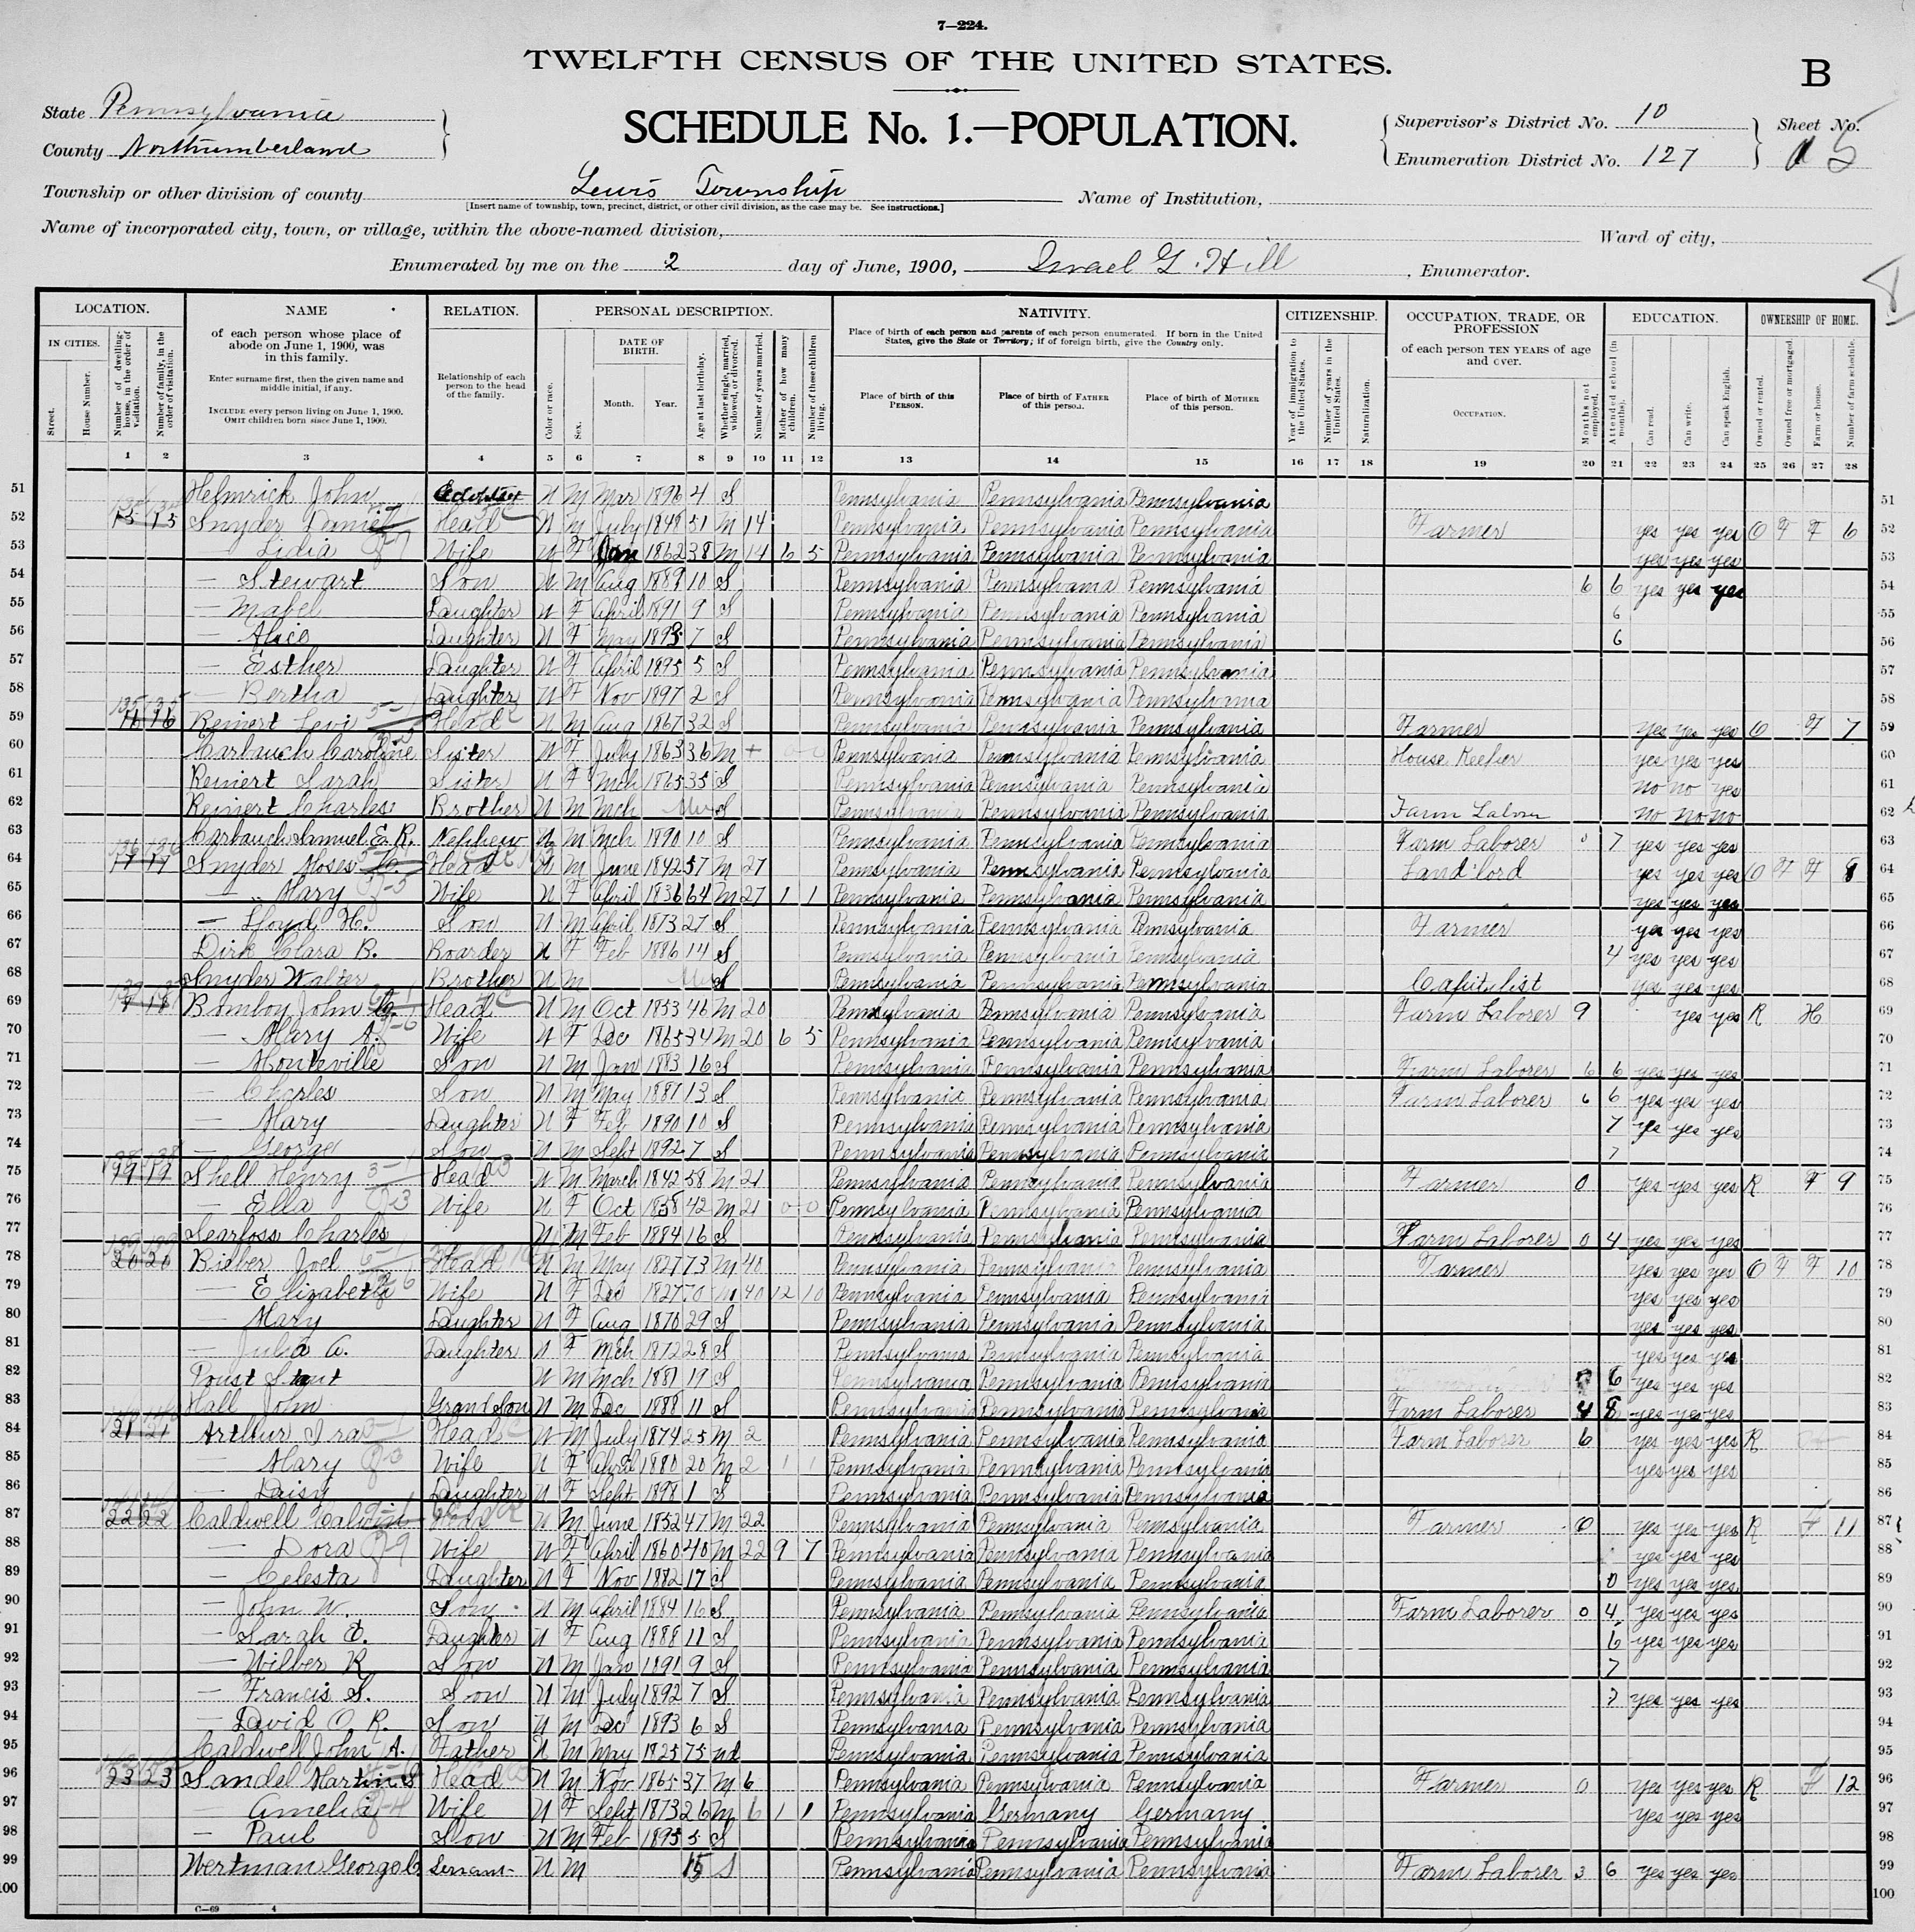 7—224.
TWELFTH CENSUS OF THE UNITED STATES.
B
State Pennsylvania
County Northumberland
SCHEDULE No. 1.—POPULATION.
Supervisor's District No. 10
Enumeration District No. 127
Sheet No. 5
Township or other division of county Lewis Township
[Insert name of township, town, precinct, district, or other civil division, as the case may be. See instructions.]
Name of Institution,
Name of incorporated city, town, or village, within the above-named division,
Ward of city,
Enumerated by me on the 2 day of June, 1900, Israel G. Hill, Enumerator.
LOCATION. NAME RELATION. PERSONAL DESCRIPTION. NATIVITY. CITIZENSHIP. OCCUPATION, TRADE, OR PROFESSION EDUCATION. OWNERSHIP OF HOME.
IN CITIES. Street. House Number. Number of dwelling-house, in the order of visitation. Number of family, in the order of visitation.
of each person whose place of abode on June 1, 1900, was in this family.
Enter surname first, then the given name and middle initial, if any.
INCLUDE every person living on June 1, 1900. OMIT children born since June 1, 1900.
Relationship of each person to the head of the family.
Color or race. Sex. DATE OF BIRTH. Month. Year. Age at last birthday. Whether single, married, widowed, or divorced. Number of years married. Mother of how many children. Number of these children living.
Place of birth of each person and parents of each person enumerated. If born in the United States, give the State or Territory; if of foreign birth, give the Country only.
Place of birth of this PERSON. Place of birth of FATHER of this person. Place of birth of MOTHER of this person.
Year of immigration to the United States. Number of years in the United States. Naturalization.
of each person TEN YEARS of age and over.
OCCUPATION. Months not employed. Attended school (in months). Can read. Can write. Can speak English. Owned or rented. Owned free or mortgaged. Farm or house. Number of farm schedule.
1 2 3 4 5 6 7 8 9 10 11 12 13 14 15 16 17 18 19 20 21 22 23 24 25 26 27 28
51 Helmrick John W M Mar 1896 4 S Pennsylvania Pennsylvania Pennsylvania 51
52 15 15 Snyder Daniel Head W M July 1848 51 M 14 Pennsylvania Pennsylvania Pennsylvania Farmer yes yes yes O F F 6 52
53 — Lidia Wife W F Jan 1862 38 M 14 6 5 Pennsylvania Pennsylvania Pennsylvania yes yes yes 53
54 — Stewart Son W M Aug 1889 10 S Pennsylvania Pennsylvania Pennsylvania 6 6 yes yes yes 54
55 — Mabel Daughter W F April 1891 9 S Pennsylvania Pennsylvania Pennsylvania 6 55
56 — Alice Daughter W F May 1893 7 S Pennsylvania Pennsylvania Pennsylvania 6 56
57 — Esther Daughter W F April 1895 5 S Pennsylvania Pennsylvania Pennsylvania 57
58 — Bertha Daughter W F Nov 1897 2 S Pennsylvania Pennsylvania Pennsylvania 58
59 16 16 Reinert Levi Head W M Aug 1867 32 S Pennsylvania Pennsylvania Pennsylvania Farmer yes yes yes O F 7 59
60 Carbauch Caroline Sister W F July 1863 36 M + 0 0 Pennsylvania Pennsylvania Pennsylvania House Keeper yes yes yes 60
61 Reinert Sarah Sister W F Mch 1865 35 S Pennsylvania Pennsylvania Pennsylvania no no yes 61
62 Reinert Charles Brother W M Mch S Pennsylvania Pennsylvania Pennsylvania Farm Labor no no no 62
63 Carbauch Samuel E. R. Nephew W M Mch 1890 10 S Pennsylvania Pennsylvania Pennsylvania Farm Laborer 0 7 yes yes yes 63
64 17 17 Snyder Moses Head W M June 1842 57 M 27 Pennsylvania Pennsylvania Pennsylvania Land'lord yes yes yes O F F 8 64
65 — Mary Wife W F April 1836 64 M 27 1 1 Pennsylvania Pennsylvania Pennsylvania yes yes yes 65
66 — Lloyd H. Son W M April 1873 27 S Pennsylvania Pennsylvania Pennsylvania Farmer yes yes yes 66
67 Dirk Clara B. Boarder W F Feb 1886 14 S Pennsylvania Pennsylvania Pennsylvania 4 yes yes yes 67
68 Snyder Walter Brother W M S Pennsylvania Pennsylvania Pennsylvania Capitalist yes yes yes 68
69 18 Bomboy John Head W M Oct 1853 46 M 20 Pennsylvania Pennsylvania Pennsylvania Farm Laborer 9 yes yes R H 69
70 — Mary A. Wife W F Dec 1865 34 M 20 6 5 Pennsylvania Pennsylvania Pennsylvania 70
71 — Monteville Son W M Jan 1883 16 S Pennsylvania Pennsylvania Pennsylvania Farm Laborer 6 6 yes yes yes 71
72 — Charles Son W M May 1887 13 S Pennsylvania Pennsylvania Pennsylvania Farm Laborer 6 6 yes yes yes 72
73 — Mary Daughter W F Feb 1890 10 S Pennsylvania Pennsylvania Pennsylvania 7 yes yes yes 73
74 — George Son W M Sept 1892 7 S Pennsylvania Pennsylvania Pennsylvania 7 74
75 19 19 Shell Henry Head W M March 1842 58 M 21 Pennsylvania Pennsylvania Pennsylvania Farmer 0 yes yes yes R F 9 75
76 — Ella Wife W F Oct 1858 42 M 21 0 0 Pennsylvania Pennsylvania Pennsylvania 76
77 Searfoss Charles W M Feb 1884 16 S Pennsylvania Pennsylvania Pennsylvania Farm Laborer 0 4 yes yes yes 77
78 20 20 Bieber Joel Head W M May 1827 73 M 40 Pennsylvania Pennsylvania Pennsylvania Farmer yes yes yes O F F 10 78
79 — Elizabeth Wife W F Dec 1827 70 M 40 12 10 Pennsylvania Pennsylvania Pennsylvania yes yes yes 79
80 — Mary Daughter W F Aug 1870 29 S Pennsylvania Pennsylvania Pennsylvania yes yes yes 80
81 — Julia A. Daughter W F Mch 1872 28 S Pennsylvania Pennsylvania Pennsylvania yes yes yes 81
82 Poust W M Mch 1881 19 S Pennsylvania Pennsylvania Pennsylvania 6 yes yes yes 82
83 Hall John Grand Son W M Dec 1888 11 S Pennsylvania Pennsylvania Pennsylvania Farm Laborer 4 8 yes yes yes 83
84 21 21 Arthur Ira Head W M July 1874 25 M 2 Pennsylvania Pennsylvania Pennsylvania Farm Laborer 6 yes yes yes R 84
85 — Mary Wife W F April 1880 20 M 2 1 1 Pennsylvania Pennsylvania Pennsylvania yes yes yes 85
86 — Daisy Daughter W F Sept 1898 1 S Pennsylvania Pennsylvania Pennsylvania 86
87 22 22 Caldwell Calvin Head W M June 1852 47 M 22 Pennsylvania Pennsylvania Pennsylvania Farmer 0 yes yes yes R F 11 87
88 — Dora Wife W F April 1860 40 M 22 9 7 Pennsylvania Pennsylvania Pennsylvania yes yes yes 88
89 — Celesta Daughter W F Nov 1882 17 S Pennsylvania Pennsylvania Pennsylvania 0 yes yes yes 89
90 — John W. Son W M April 1884 16 S Pennsylvania Pennsylvania Pennsylvania Farm Laborer 0 4 yes yes yes 90
91 — Sarah E. Daughter W F Aug 1888 11 S Pennsylvania Pennsylvania Pennsylvania 6 yes yes yes 91
92 — Wilber R Son W M Jan 1891 9 S Pennsylvania Pennsylvania Pennsylvania 7 92
93 — Francis S. Son W M July 1892 7 S Pennsylvania Pennsylvania Pennsylvania 7 yes yes yes 93
94 — David O R. Son W M Dec 1893 6 S Pennsylvania Pennsylvania Pennsylvania 94
95 Caldwell John A. Father W M May 1825 75 Wd Pennsylvania Pennsylvania Pennsylvania 95
96 23 23 Sandel Martin Head W M Nov 1865 37 M 6 Pennsylvania Pennsylvania Pennsylvania Farmer 0 yes yes yes R F 12 96
97 — Amelia Wife W F Sept 1873 26 M 6 1 1 Pennsylvania Germany Germany yes yes yes 97
98 — Paul Son W M Feb 1895 5 S Pennsylvania Pennsylvania Pennsylvania 98
99 Wertman George C. Servant W M 15 S Pennsylvania Pennsylvania Pennsylvania Farm Laborer 3 6 yes yes yes 99
100 100
C—69 4